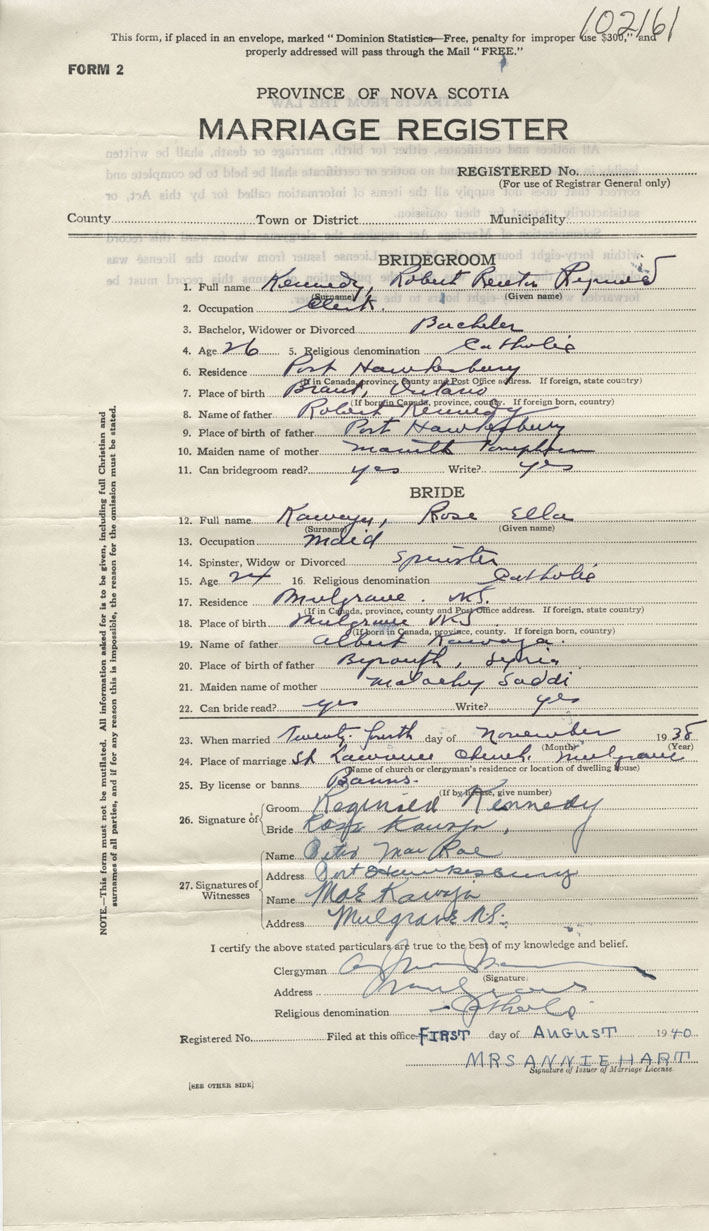 102161
This form, if placed in an envelope, marked " Dominion Statistics—Free, penalty for improper use $300," and
properly addressed will pass through the Mail "FREE."
FORM 2
PROVINCE OF NOVA SCOTIA
MARRIAGE REGISTER
REGISTERED No.
(For use of Registrar General only)
County Town or District Municipality
BRIDEGROOM
1. Full name Kennedy, Robert
(Surname) (Given name)
2. Occupation Clerk.
3. Bachelor, Widower or Divorced Bachelor
4. Age 26 5. Religious denomination Catholic
6. Residence Port Hawkesbury
(If in Canada, province, county and Post Office address. If foreign, state country)
7. Place of birth Brant, Ontario
(If born in Canada, province, county. If foreign born, country)
8. Name of father Robert Kennedy
9. Place of birth of father Port Hawkesbury
10. Maiden name of mother
11. Can bridegroom read? yes Write? yes
BRIDE
12. Full name Kawaja, Rose Ella
(Surname) (Given name)
13. Occupation maid
14. Spinster, Widow or Divorced Spinster
15. Age 24 16. Religious denomination Catholic
17. Residence Mulgrave N.S.
(If in Canada, province, county and Post Office address. If foreign, state country)
18. Place of birth Mulgrave N.S
(If born in Canada, province, county. If foreign born, country)
19. Name of father Albert Kawaja.
20. Place of birth of father Beyrouth, Syria
21. Maiden name of mother Malachy Saddi
22. Can bride read? yes Write? yes
23. When married Twenty-fourth day of November 1938
(Month) (Year)
24. Place of marriage St Lawrence Church, Mulgrave
(Name of church or clergyman's residence or location of dwelling house)
25. By license or banns Banns.
(If by license, give number)
26. Signature of Groom Reginald Kennedy
Bride Rose Kawaja,
27. Signatures of Witnesses
Name Peter MacRae
Address Port Hawkesbury
Name Mae Kawaja
Address Mulgrave N.S.
I certify the above stated particulars are true to the best of my knowledge and belief.
Clergyman
(Signature)
Address Mulgrave
Religious denomination Catholic
Registered No. Filed at this office FIRST day of AUGUST 1940
MRS ANNIE HART
Signature of Issuer of Marriage License.
[SEE OTHER SIDE]
NOTE.—This form must not be mutilated. All information asked for is to be given, including full Christian and
surnames of all parties, and if for any reason this is impossible, the reason for the omission must be stated.